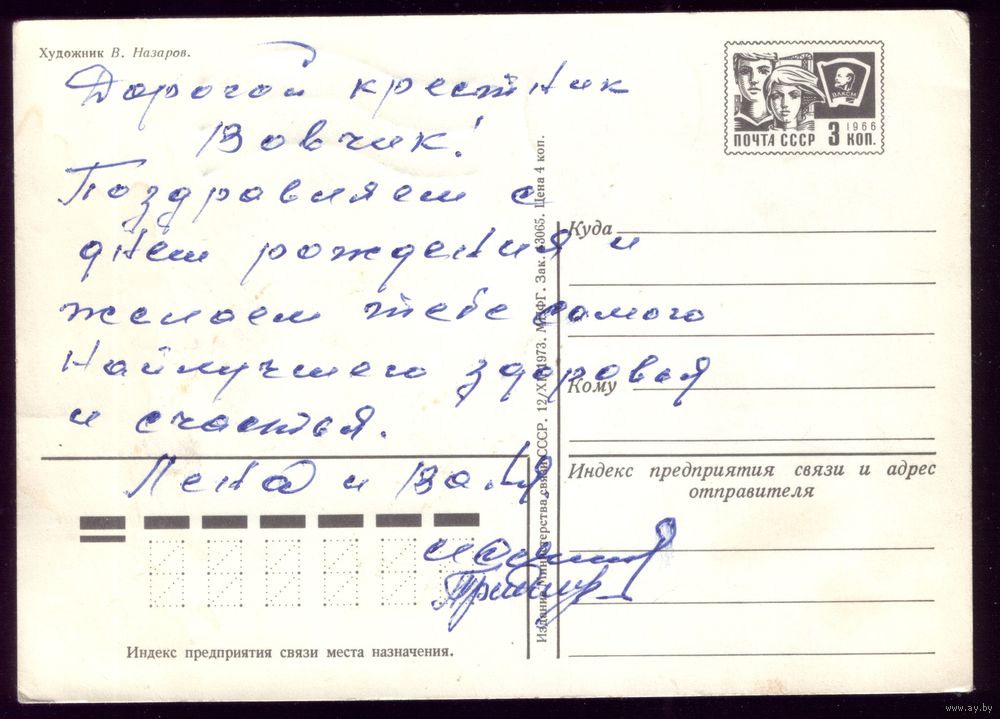 Художник В. Назаров.
Дорогой крестник
Вовчик!
Поздравляем с
днём рождения и
желаем тебе самого
наилучшего здоровья
и счастья.
Лена и Валя.
ПОЧТА СССР 3 КОП.
1966
ВЛКСМ
Куда
Кому
Индекс предприятия связи и адрес
отправителя
Издание Министерства связи СССР. 12/XI 1973. МПФГ. Зак. 43065. Цена 4 коп.
Индекс предприятия связи места назначения.
www.ay.by